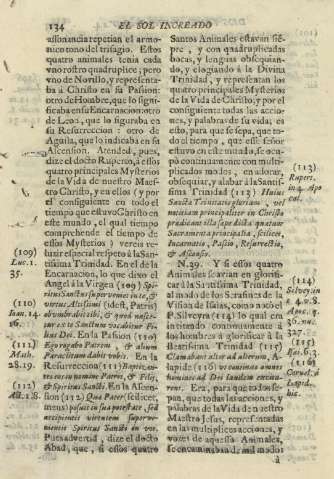 134 EL SOL INCREADO
assonancia repetian el armo-
nico tono del trisagio. Estos
quatro animales tenia cada
vno rostro quadruplice; pero
vno de Novillo, y representa-
ba à Christo en su Passion:
otro de Hombre, que lo signi-
ficaba en su Encarnacion: otro
de Leon, que lo figuraba en
su Resurreccion: otro de
Aguila, que lo indicaba en su
Ascension. Atended, pues,
dize el docto Ruperto, à essos
quatro principales Mysterios
de la Vida de nuestro Maes-
tro Christo, y en ellos (y por
el consiguiente en todo el
tiempo que estuvo Christo en
este mundo, el qual tiempo
comprehende el tiempo de
essos Mysterios) vereis re-
luzir especial respeto à la San-
tissima Trinidad. En el de la
(109) Encarnacion, lo que dixo el
Luc. 1. Angel à la Virgen (109) Spi-
35. ritus Sanctus superveniet in te, &
virtus Altissimi (idest, Patris)
(110) obumbrabit tibi, & quod nasce-
Ioan. 14. tur ex te Sanctum vocabitur Fi-
16. lius Dei. En la Passion (110)
(111) Ego rogabo Patrem, & alium
Math. Paracletum dabit vobis. En la
28. 19. Resurreccion (111) Baptizan-
tes eos in nomine Patris, & Filij,
(112) & Spiritus Sancti. En la Ascen-
Act. 1. 8. sion (112) Qua Pater (scilicet,
meus) posuit in sua potestate, sed
accipietis virtutem superve-
nientis Spiritus Sancti in vos.
Pues advertid, dize el docto
Abad, que, si essos quatro
Santos Animales estavan siē-
pre, y con quadruplicadas
bocas, y lenguas obsequian-
do, y elogiando à la Divina
Trinidad, y representan los
quatro principales Mysterios
de la Vida de Christo, y por el
consiguiente todas las accio-
nes, y palabras de su vida; es
esto, para que se sepa, que to-
do el tiempo, que esse señor
estuvo en este mundo, se ocu-
pò continuamente con multi-
plicados modos, en adorar,
obsequiar, y alabar à la Santis-
sima Trinidad (113) Huius
Sancta Trinitatis gloriam, vel
maximam principaliter in Christo
Sacramenta principalia, scilicet,
Incarnatio, Passio, Resurrectio,
& Ascensio.
(113)
Rupert.
in 4. Apo
cal.
N. 39. Y si essos quatro
Animales se avian en glorifi-
car à la Santissima Trinidad,
al modo de los Serafines de la
Vision de Isaìas, como notò el
P. Silveyra (114) lo qual era
intiendo continuamente à
los hombres à glorificar à la
Santissima Trinidad (115)
Clamabant alter ad alterum, A-
lapide (116)
nomine ad Dei laudem
Era, para que todos se-
pan, que todas las acciones, y
palabras de la Vida de nuestro
Maestro Jesus, representadas
en las multiplices acciones, y
vozes de aquellos Animales,
se encaminaban de mil modos
à
(114)
Silveyra in
c. 4. v. 8.
Apoc. q.
36. nu.
327.
(115)
Isai. 6. 3.
(116)
Cornel. à
Lapid.
hic.